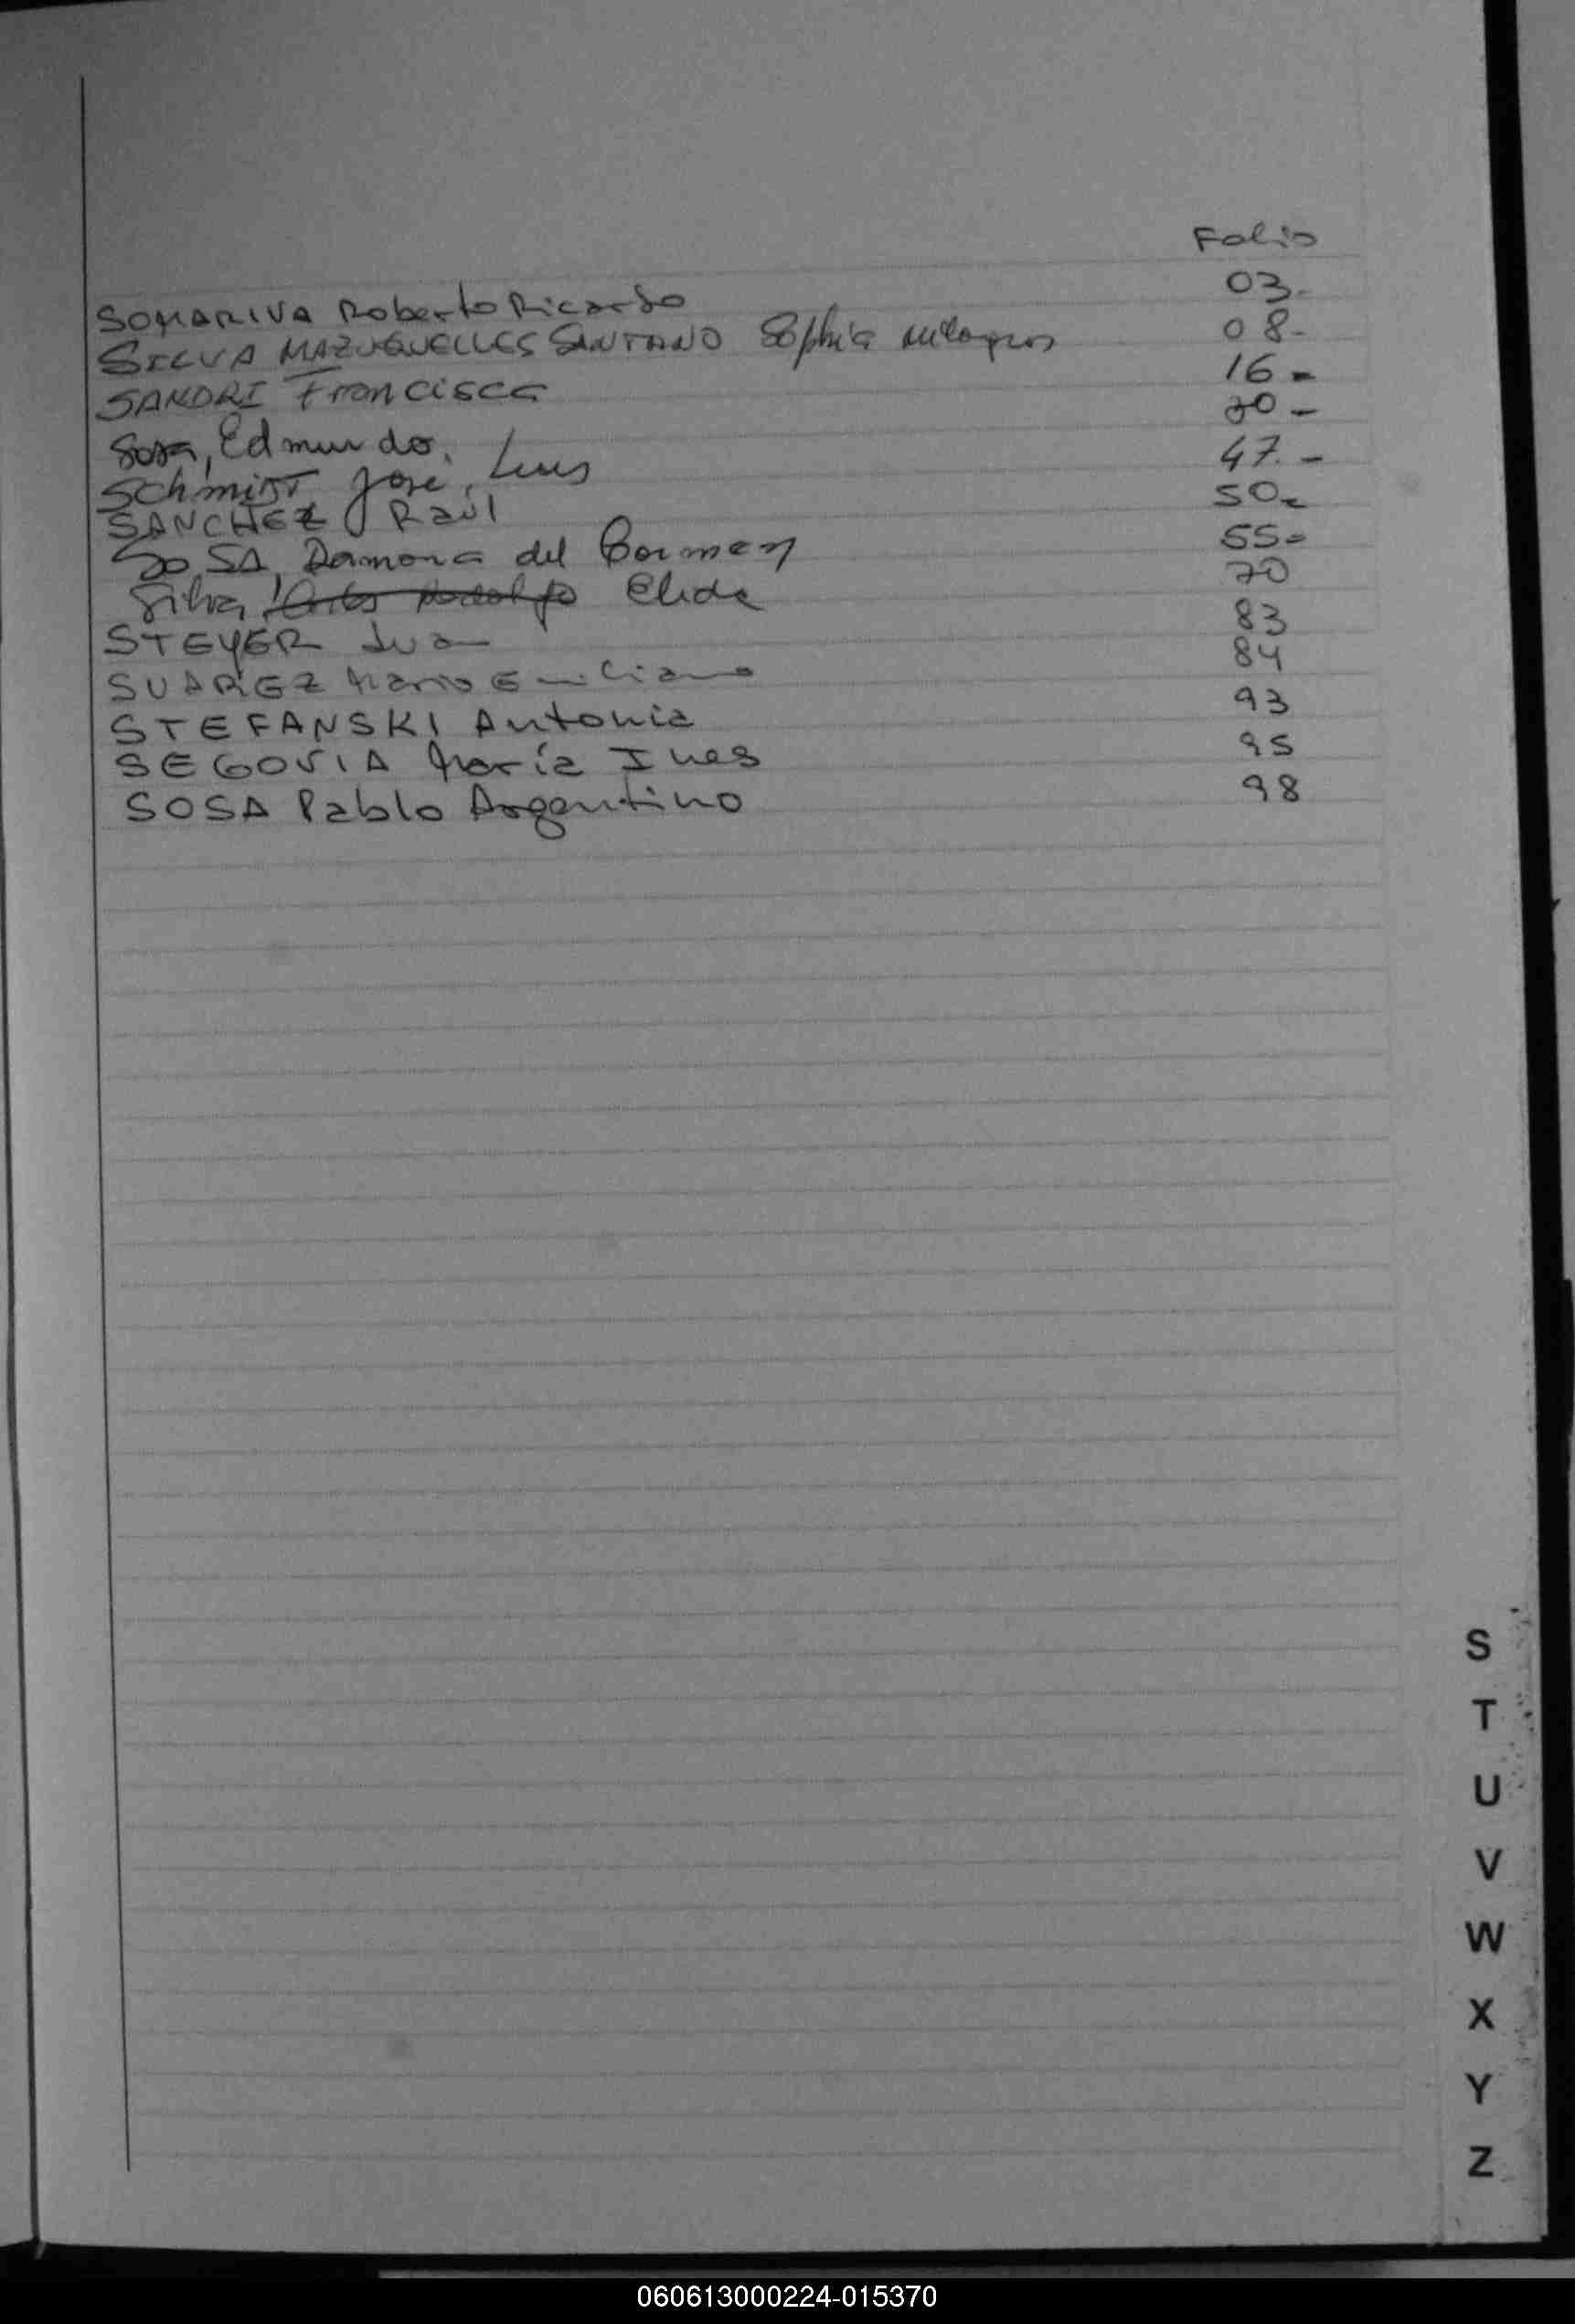 Folio
SOMARIVA Roberto Ricardo 03.
SILVA SANTANO Sophia Milagros 08-
SANDRI Francisca 16-
Sosa, Edmundo. -
Schmidt, José, Luis 47.-
SANCHEZ Raúl 50-
SOSA, Ramona del Carmen 55-
Silva, Elida 70
STEYER Juan 83
SUAREZ Mario Emiliano 84
STEFANSKI Antonia 93
SEGOVIA María Ines 95
SOSA Pablo Argentino 98
S
T
U
V
W
X
Y
Z
060613000224-015370